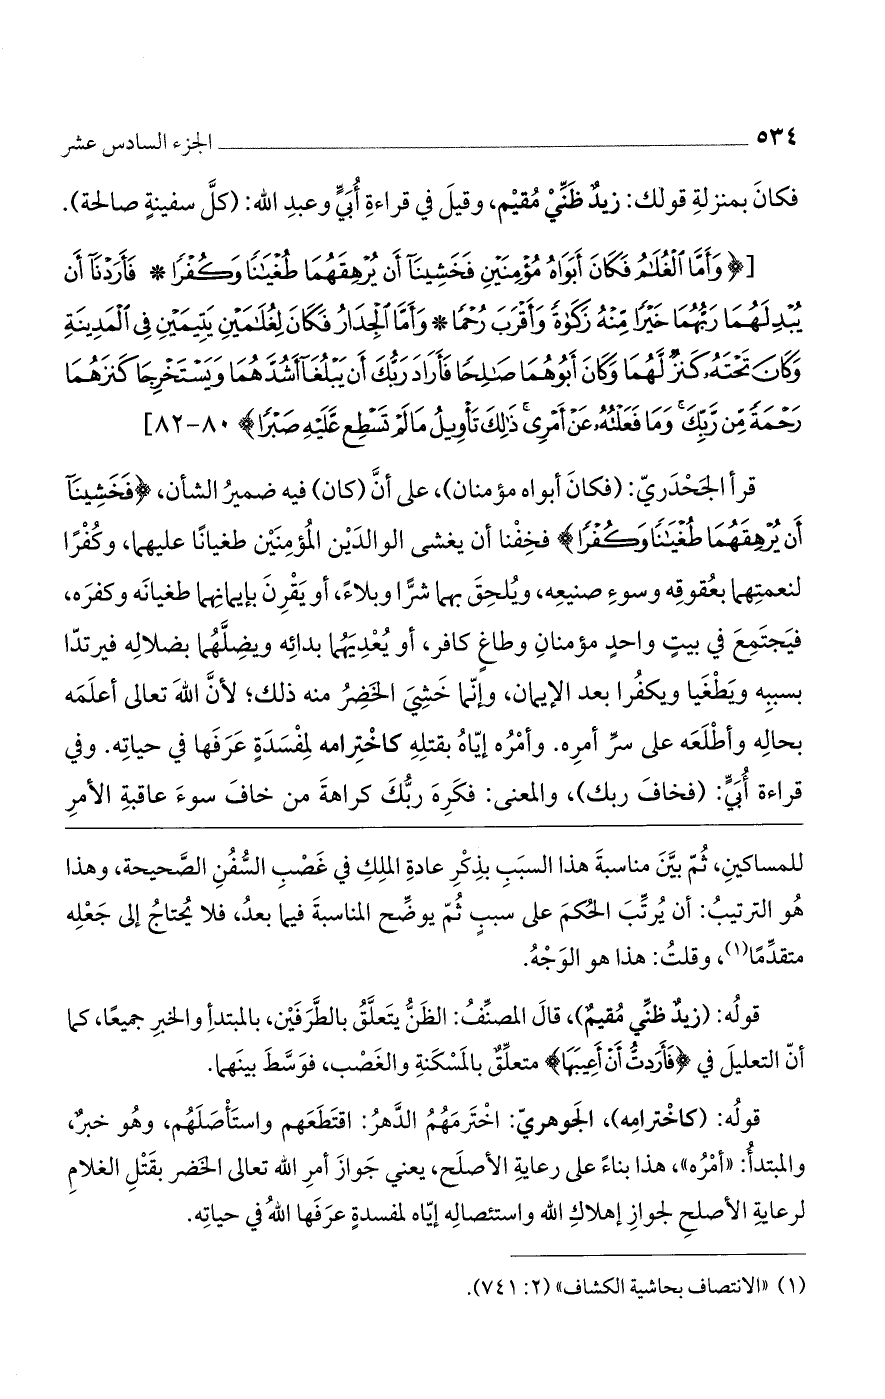 ٥٣٤ الجزء السادس عشر
فكانَ بمنزلةِ قولك: زيدٌ ظَنِّيْ مُقيْم، وقيلَ في قراءةِ أُبَيٍّ وعبدِ الله: (كلَّ سفينةٍ صالحة).
[﴿وَأَمَّا ٱلْغُلَٰمُ فَكَانَ أَبَوَاهُ مُؤْمِنَيْنِ فَخَشِينَآ أَن يُرْهِقَهُمَا طُغْيَٰنًا وَكُفْرًا * فَأَرَدْنَآ أَن
يُبْدِلَهُمَا رَبُّهُمَا خَيْرًا مِّنْهُ زَكَوٰةً وَأَقْرَبَ رُحْمًا * وَأَمَّا ٱلْجِدَارُ فَكَانَ لِغُلَٰمَيْنِ يَتِيمَيْنِ فِى ٱلْمَدِينَةِ
وَكَانَ تَحْتَهُۥ كَنزٌ لَّهُمَا وَكَانَ أَبُوهُمَا صَٰلِحًا فَأَرَادَ رَبُّكَ أَن يَبْلُغَآ أَشُدَّهُمَا وَيَسْتَخْرِجَا كَنزَهُمَا
رَحْمَةً مِّن رَّبِّكَ ۚ وَمَا فَعَلْتُهُۥ عَنْ أَمْرِى ۚ ذَٰلِكَ تَأْوِيلُ مَا لَمْ تَسْطِع عَّلَيْهِ صَبْرًا﴾ ٨٠-٨٢]
قرأ الجَحْدَريّ: (فكانَ أبواه مؤمنان)، على أنَّ (كان) فيه ضميرُ الشأن، ﴿فَخَشِينَآ
أَن يُرْهِقَهُمَا طُغْيَٰنًا وَكُفْرًا﴾ فخِفْنا أن يغشى الوالدَيْن المُؤمِنَيْن طغيانًا عليهما، وكُفْرًا
لنعمتِهما بعُقوقِه وسوءِ صنيعِه، ويُلحِقَ بهما شرًّا وبلاءً، أو يَقْرِنَ بإيمانِهما طغيانَه وكفرَه،
فيَجتَمِعَ في بيتٍ واحدٍ مؤمنانِ وطاغٍ كافر، أو يُعْدِيَهُما بدائِه ويضِلَّهُما بضلالِه فيرتدّا
بسببِه ويَطْغَيا ويكفُرا بعد الإيمان، وإنّما خَشِيَ الخَضِرُ منه ذلك؛ لأنَّ اللهَ تعالى أعلَمَه
بحالِه وأطْلَعَه على سرِّ أمرِه. وأمْرُه إيّاهُ بقتلِهِ كاخْتِرامه لمِفْسَدَةٍ عَرَفَها في حياتِه. وفي
قراءة أُبَيٍّ: (فخافَ ربك)، والمعنى: فكَرِهَ ربُّكَ كراهةَ من خافَ سوءَ عاقبةِ الأمرِ
للمساكينِ، ثُمّ بيَّنَ مناسبةَ هذا السبَبِ بذِكْرِ عادةِ الملِكِ في غَصْبِ السُّفُنِ الصَّحيحة، وهذا
هُو الترتيبُ: أن يُرتِّبَ الحُكمَ على سببٍ ثُمّ يوضِّح المناسبةَ فيما بعدُ، فلا يُحتاجُ إلى جَعْلِه
متقدِّمًا(١)، وقلتُ: هذا هو الوَجْهُ.
قولُه: (زيدٌ ظنِّي مُقيمٌ)، قالَ المصنِّفُ: الظَنُّ يتَعلَّقُ بالطَّرَفَيْن، بالمبتدأِ والخبرِ جميعًا، كما
أنّ التعليلَ في ﴿فَأَرَدتُّ أَنْ أَعِيبَهَا﴾ متعلِّقٌ بالمَسْكَنةِ والغَصْب، فوَسَّطَ بينَهما.
قولُه: (كاخْترامِه)، الجَوهريّ: اخْتَرمَهُمُ الدَّهرُ: اقتَطَعَهم واستَأْصَلَهُم، وهُو خبرٌ،
والمبتدأُ: «أمْرُه»، هذا بناءً على رعايةِ الأصلَح، يعني جَوازَ أمرِ الله تعالى الخَضر بقَتْلِ الغلامِ
لرعايةِ الأصلحِ لجوازِ إهلاكِ الله واستئصالِه إيّاه لمفسدةٍ عرَفَها اللهُ في حياتِه.
(١) «الانتصاف بحاشية الكشاف» (٢: ٧٤١).